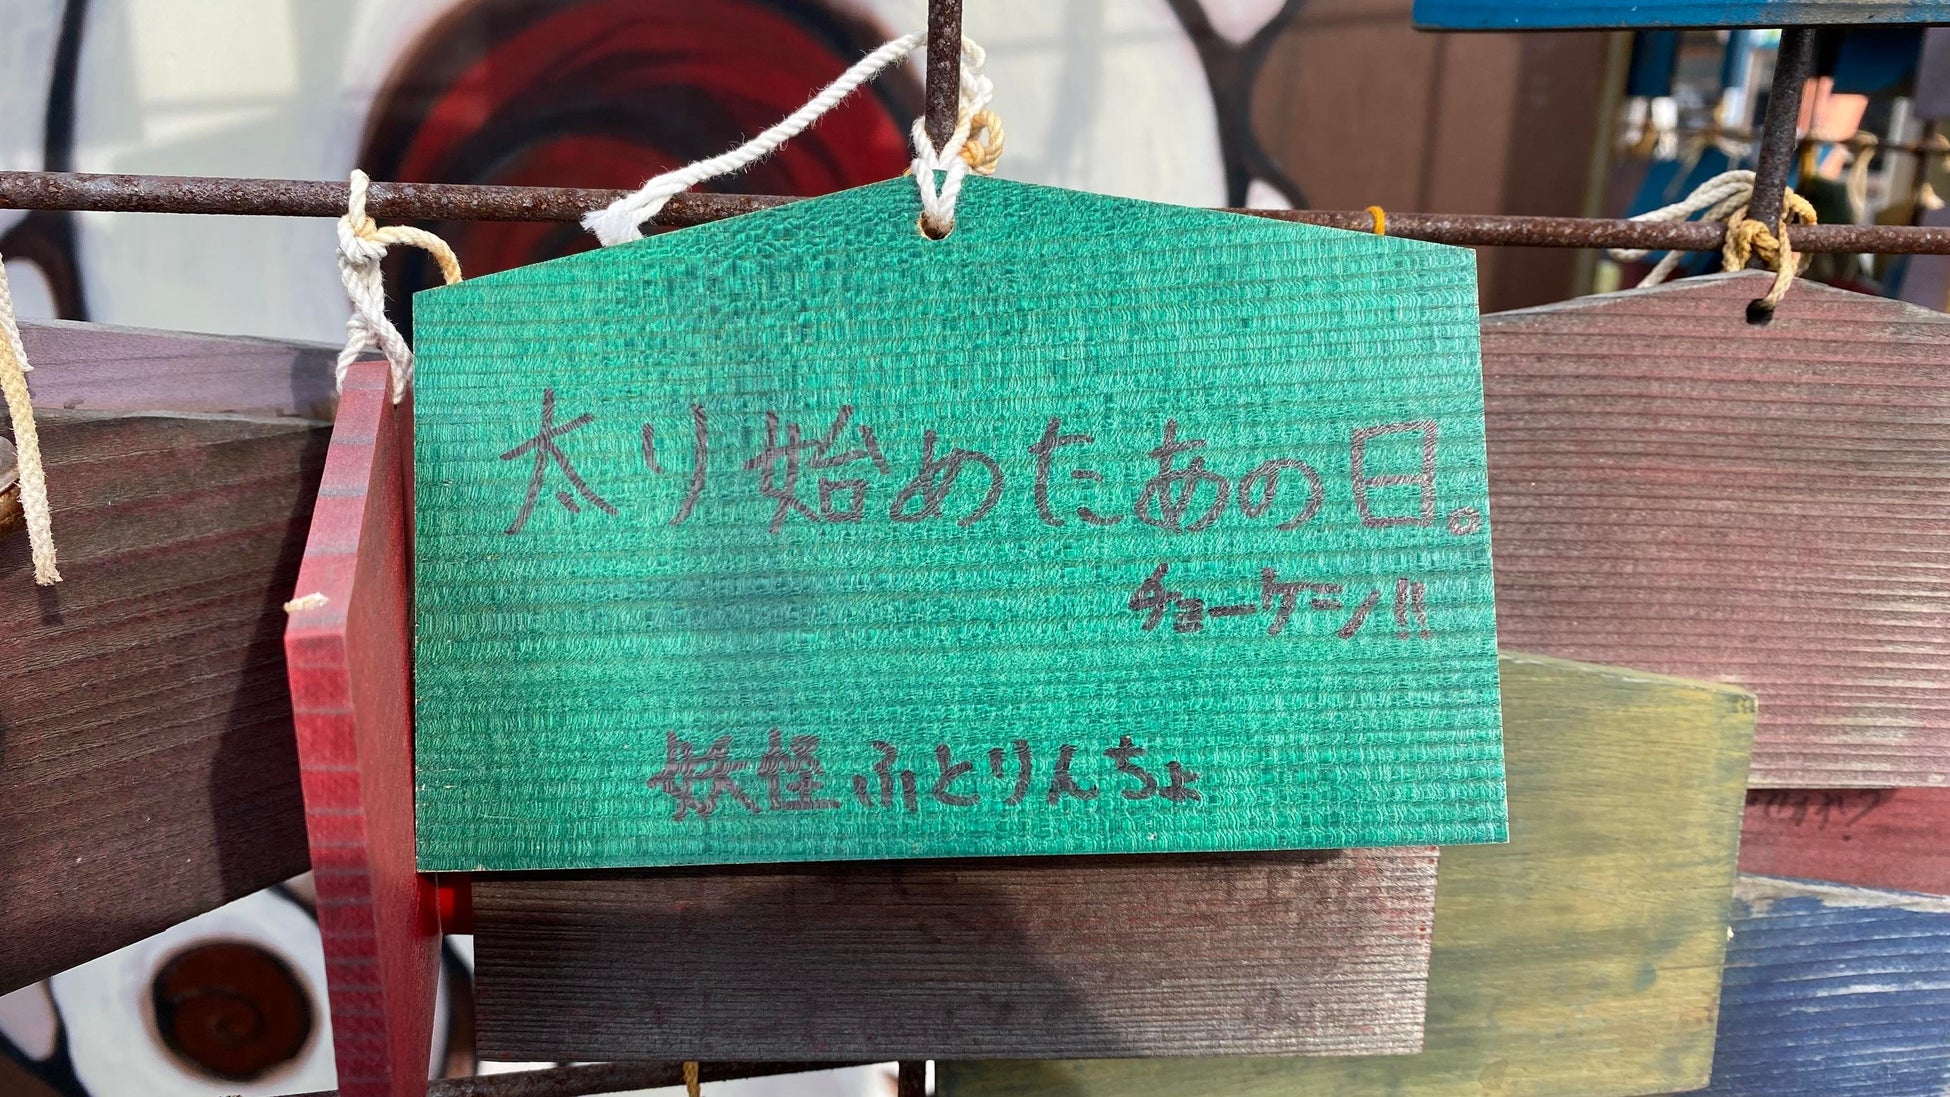 太り始めたあの日。
チョーケシ!!
妖怪ふとりんちょ